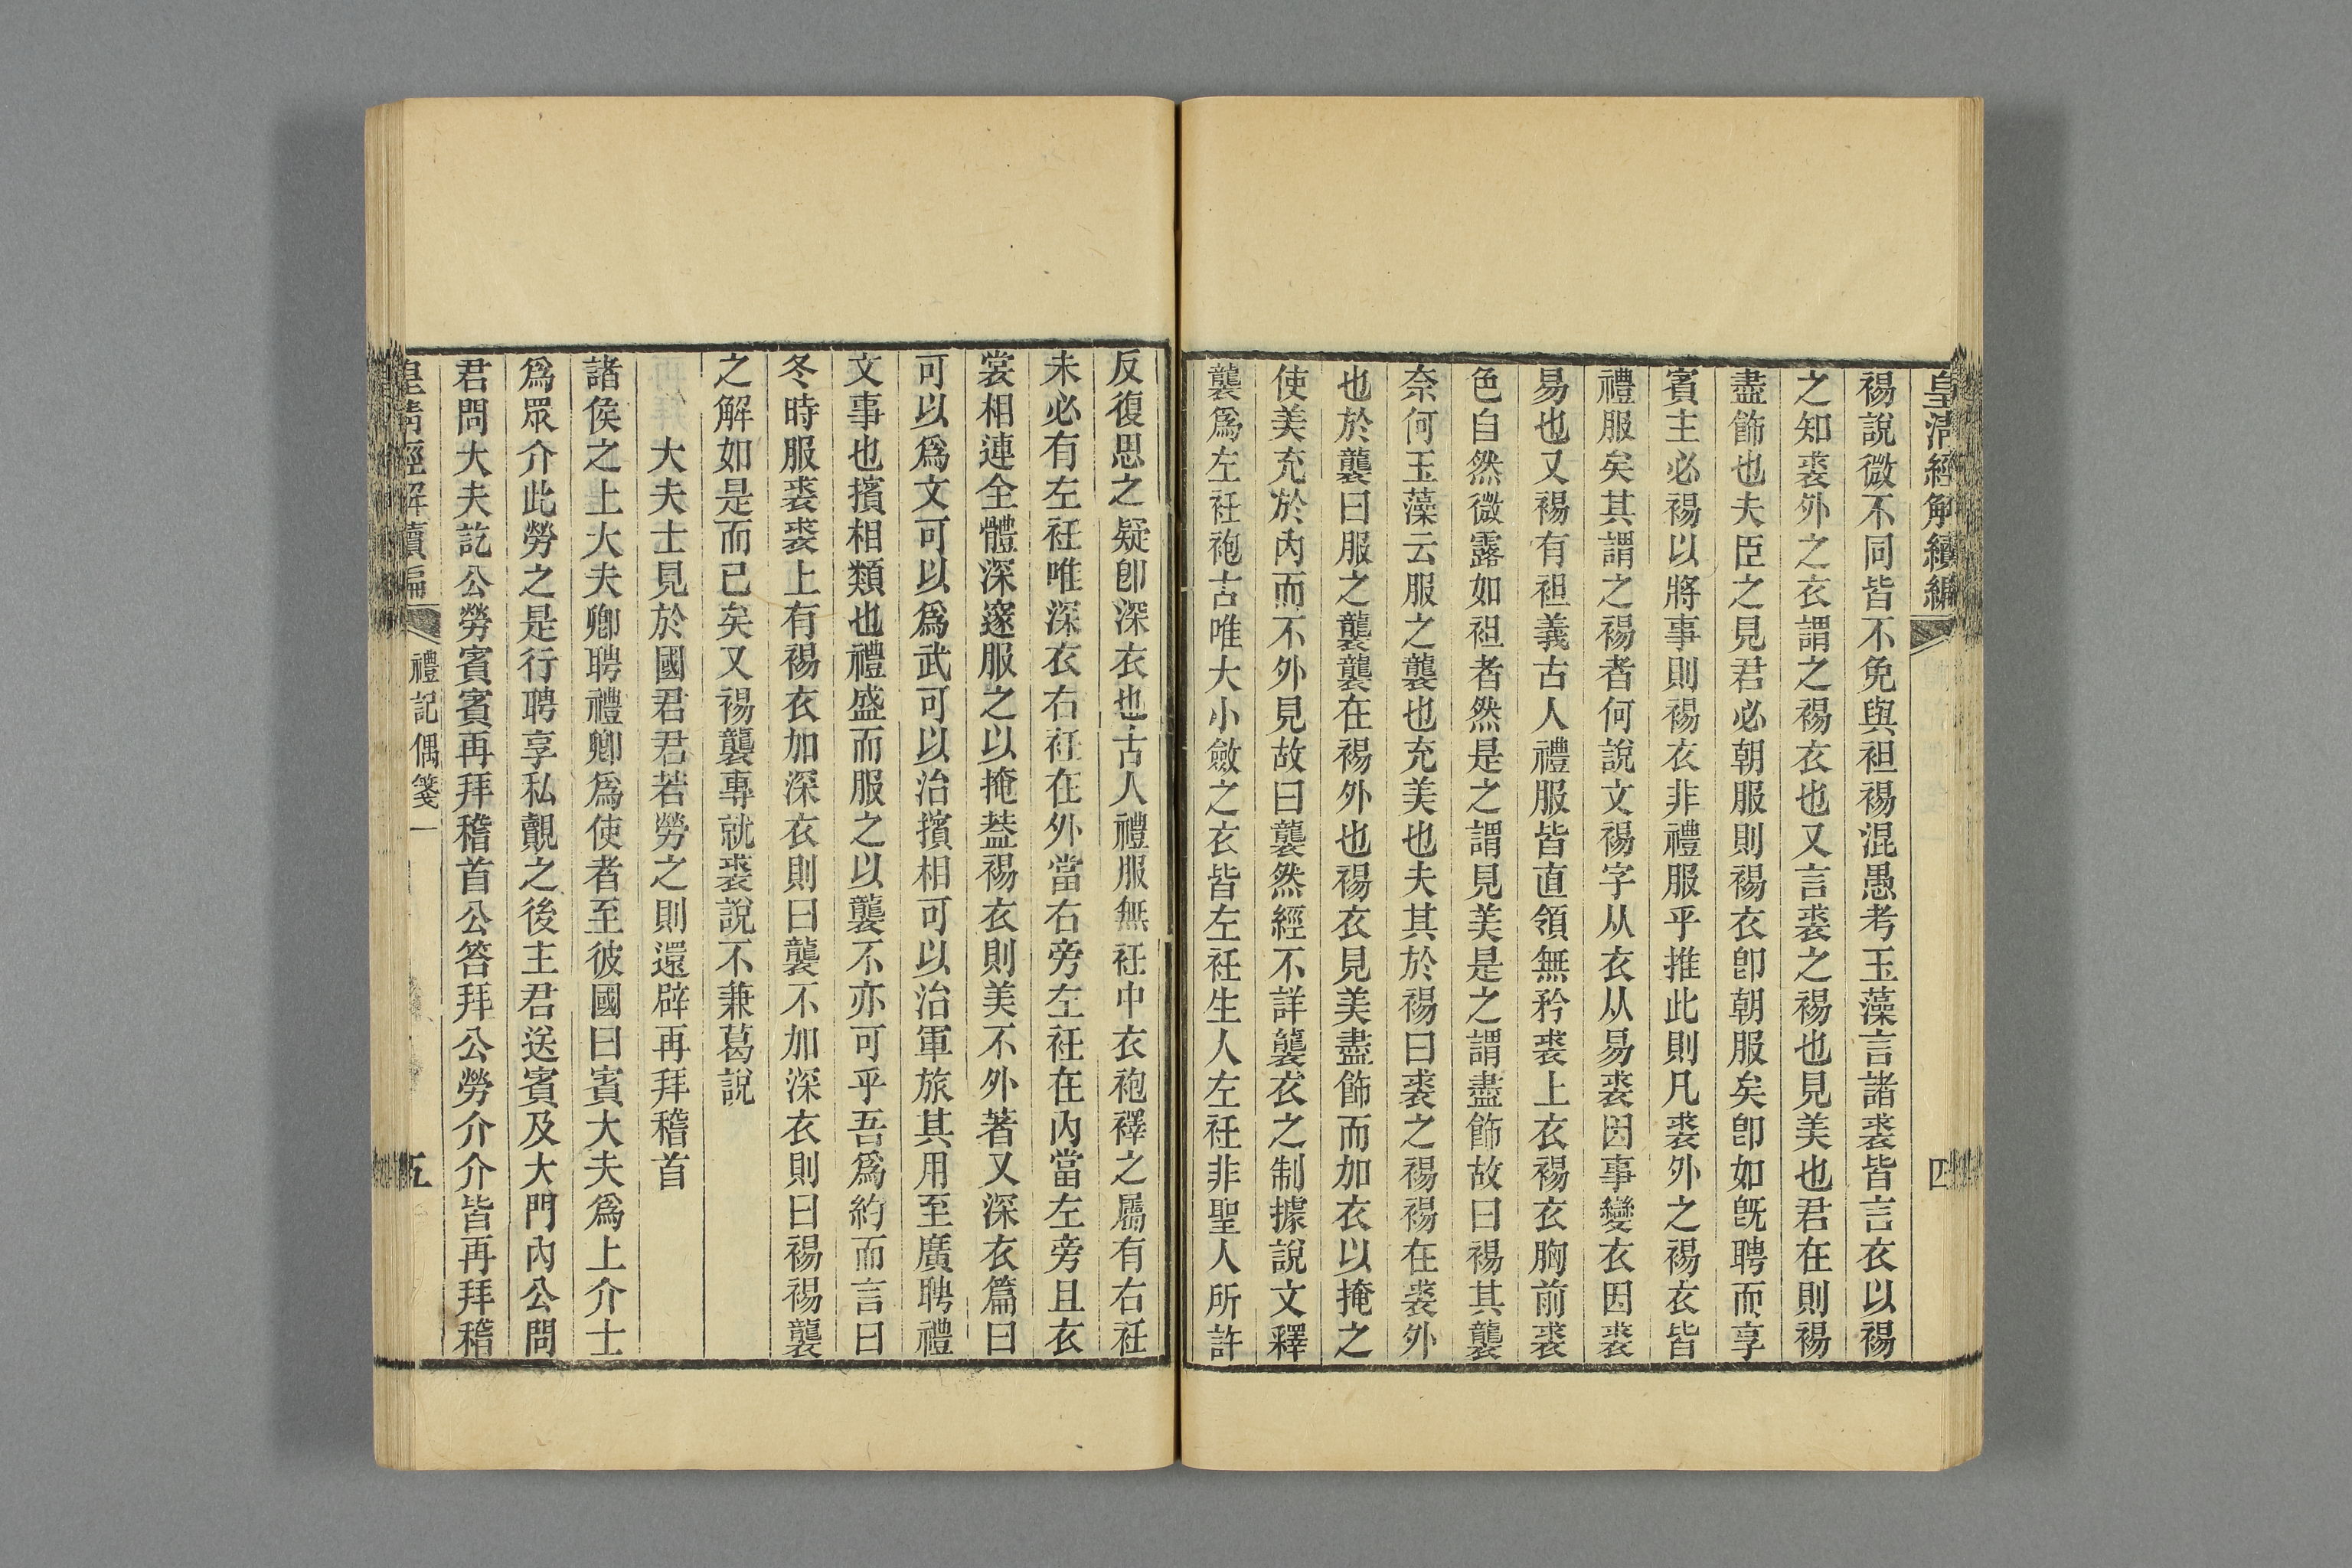 皇清經解續編
四
裼說微不同皆不免與袒裼混愚考玉藻言諸裘皆言衣以裼
之知裘外之衣謂之裼衣也又言裘之裼也見美也君在則裼
盡飾也夫臣之見君必朝服則裼衣卽朝服矣卽如旣聘而享
賓主必裼以將事則裼衣非禮服乎推此則凡裘外之裼衣皆
禮服矣其謂之裼者何說文裼字从衣从易裘因事變衣因裘
易也又裼有袒義古人禮服皆直領無衿裘上衣裼衣胸前裘
色自然微露如袒者然是之謂見美是之謂盡飾故曰裼其襲
奈何玉藻云服之襲也充美也夫其於裼曰裘之裼裼在裘外
也於襲曰服之襲襲在裼外也裼衣見美盡飾而加衣以掩之
使美充於內而不外見故曰襲然經不詳襲衣之制據說文釋
襲爲左衽袍古唯大小斂之衣皆左衽生人左衽非聖人所許
反復思之疑卽深衣也古人禮服無衽中衣袍襗之屬有右衽
未必有左衽唯深衣右衽在外當右旁左衽在內當左旁且衣
裳相連全體深邃服之以掩葢裼衣則美不外著又深衣篇曰
可以爲文可以爲武可以治擯相可以治軍旅其用至廣聘禮
文事也擯相類也禮盛而服之以襲不亦可乎吾爲約而言曰
冬時服裘裘上有裼衣加深衣則曰襲不加深衣則曰裼裼襲
之解如是而已矣又裼襲專就裘說不兼葛說
大夫士見於國君君若勞之則還辟再拜稽首
諸侯之上大夫卿聘禮卿爲使者至彼國曰賓大夫爲上介士
爲眾介此勞之是行聘享私覿之後主君送賓及大門內公問
君問大夫訖公勞賓賓再拜稽首公答拜公勞介介皆再拜稽
皇清經解續編
禮記偶箋一
五